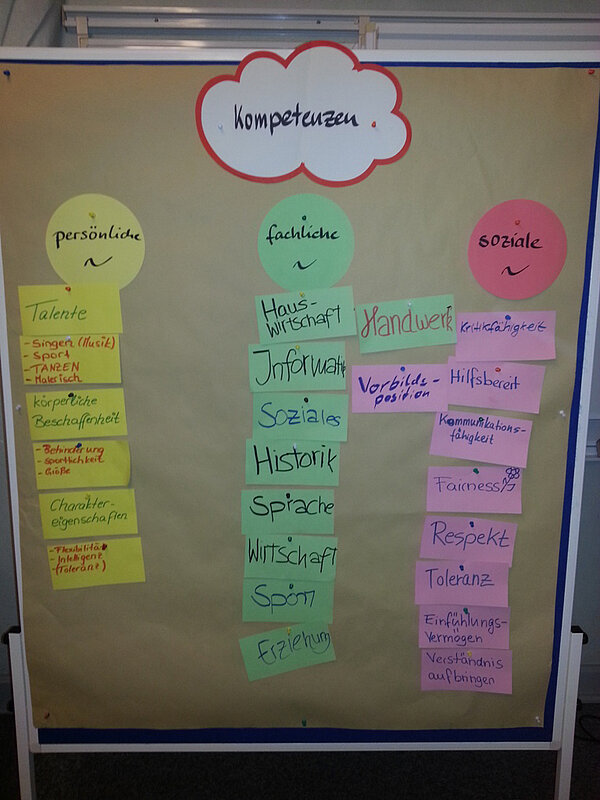 Kompetenzen
persönliche
Talente
- Singen (Musik)
- Sport
- TANZEN
- Malerisch
körperliche
Beschaffenheit
- Behinderung
- Sportlichkeit
- Größe
Charakter-
eigenschaften
- Flexibilität
- Intelligenz
- (Toleranz)
fachliche
Haus-
wirtschaft
Handwerk
Informatik
Soziales
Historik
Sprache
Wirtschaft
Sport
Erziehung
soziale
Kritikfähigkeit
Vorbilds-
position
Hilfsbereit
Kommunikations-
fähigkeit
Fairness
Respekt
Toleranz
Einfühlungs-
vermögen
Verständnis
aufbringen